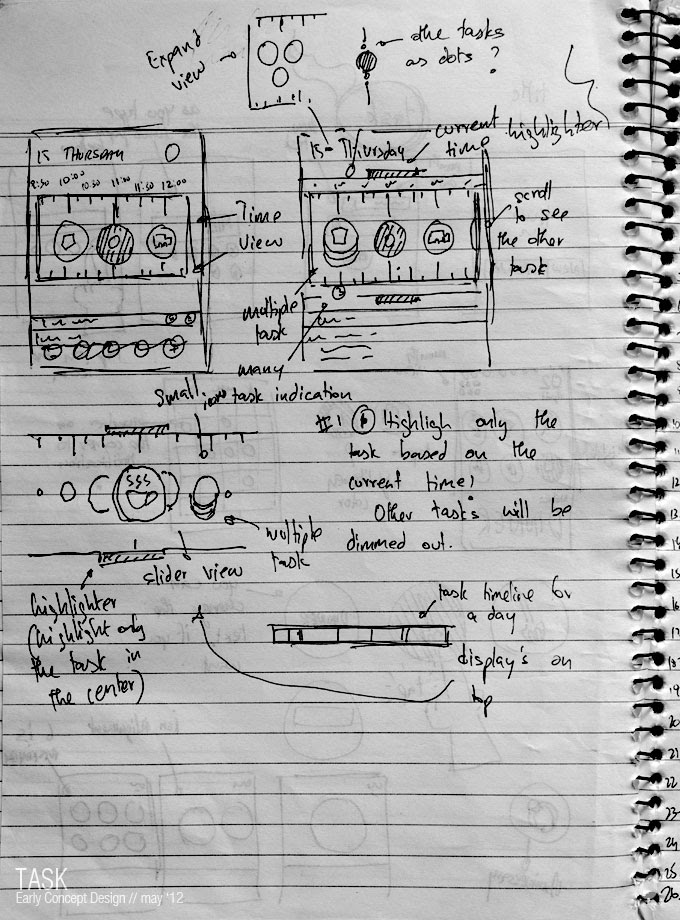 Expand
view
the tasks
as dots ?
current
time
highlighter
15 THURSDAY
9:30 10:00 10:30 11:00 11:30 12:00
15 - Thursday
Time
view
scroll
to see
the other
task
multiple
task
many
small icon task indication
#1 Highligh only the
task based on the
current time!
Other tasks will be
dimmed out.
multiple
task
slider view
highlighter
(highlight only
the task in
the center)
task timeline for
a day
display's on
top
12
13
14
15
16
17
18
19
20
21
22
23
24
25
26
TASK
Early Concept Design // may '12